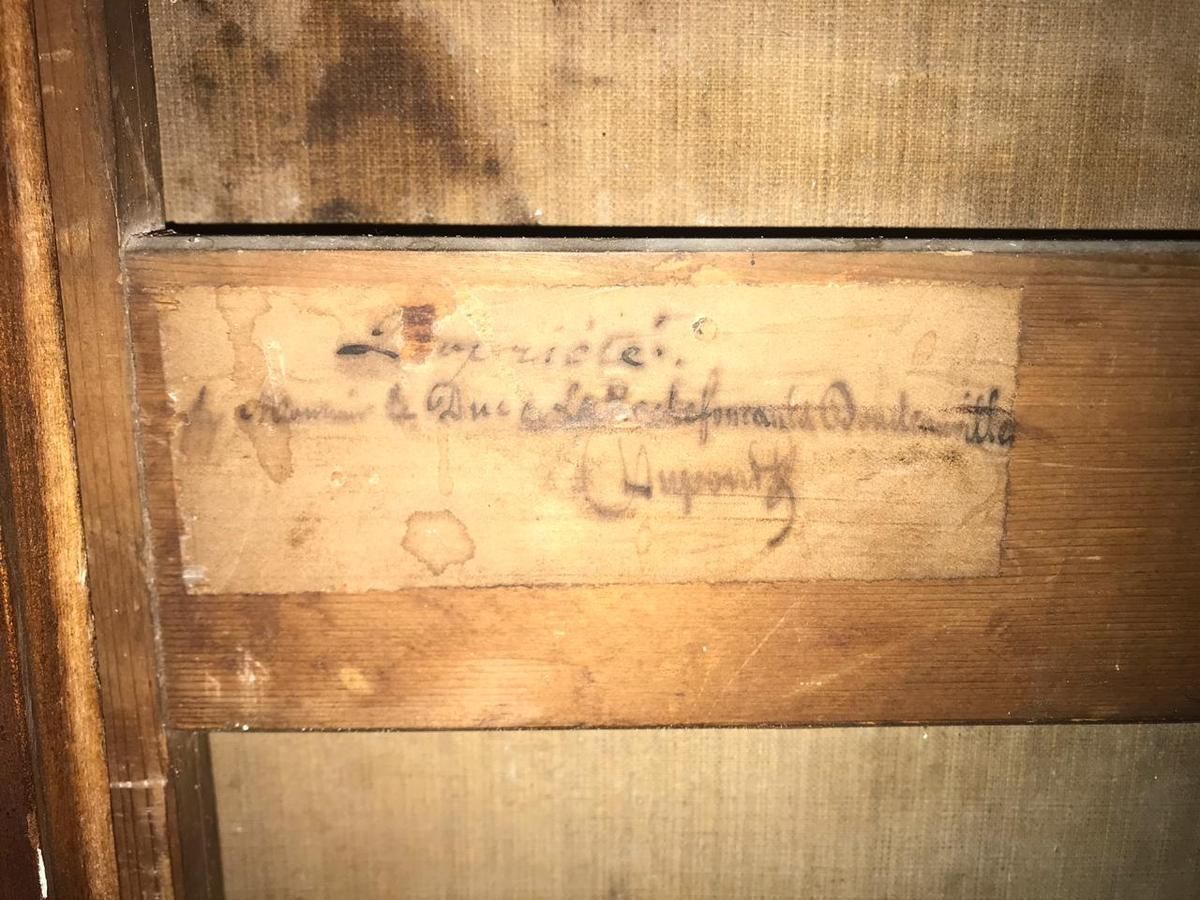 Propriété.
de Monsieur le Duc de La Rochefoucauld Doudeauville
Dupont